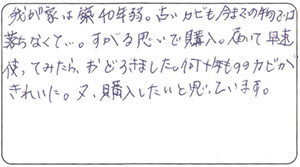 我が家は築40年弱。古いカビも今までの物では
落ちなくて…。すがる思いで購入。届いて早速
使ってみたら、おどろきました。何十年ものカビが
きれいに。又、購入したいと思っています。